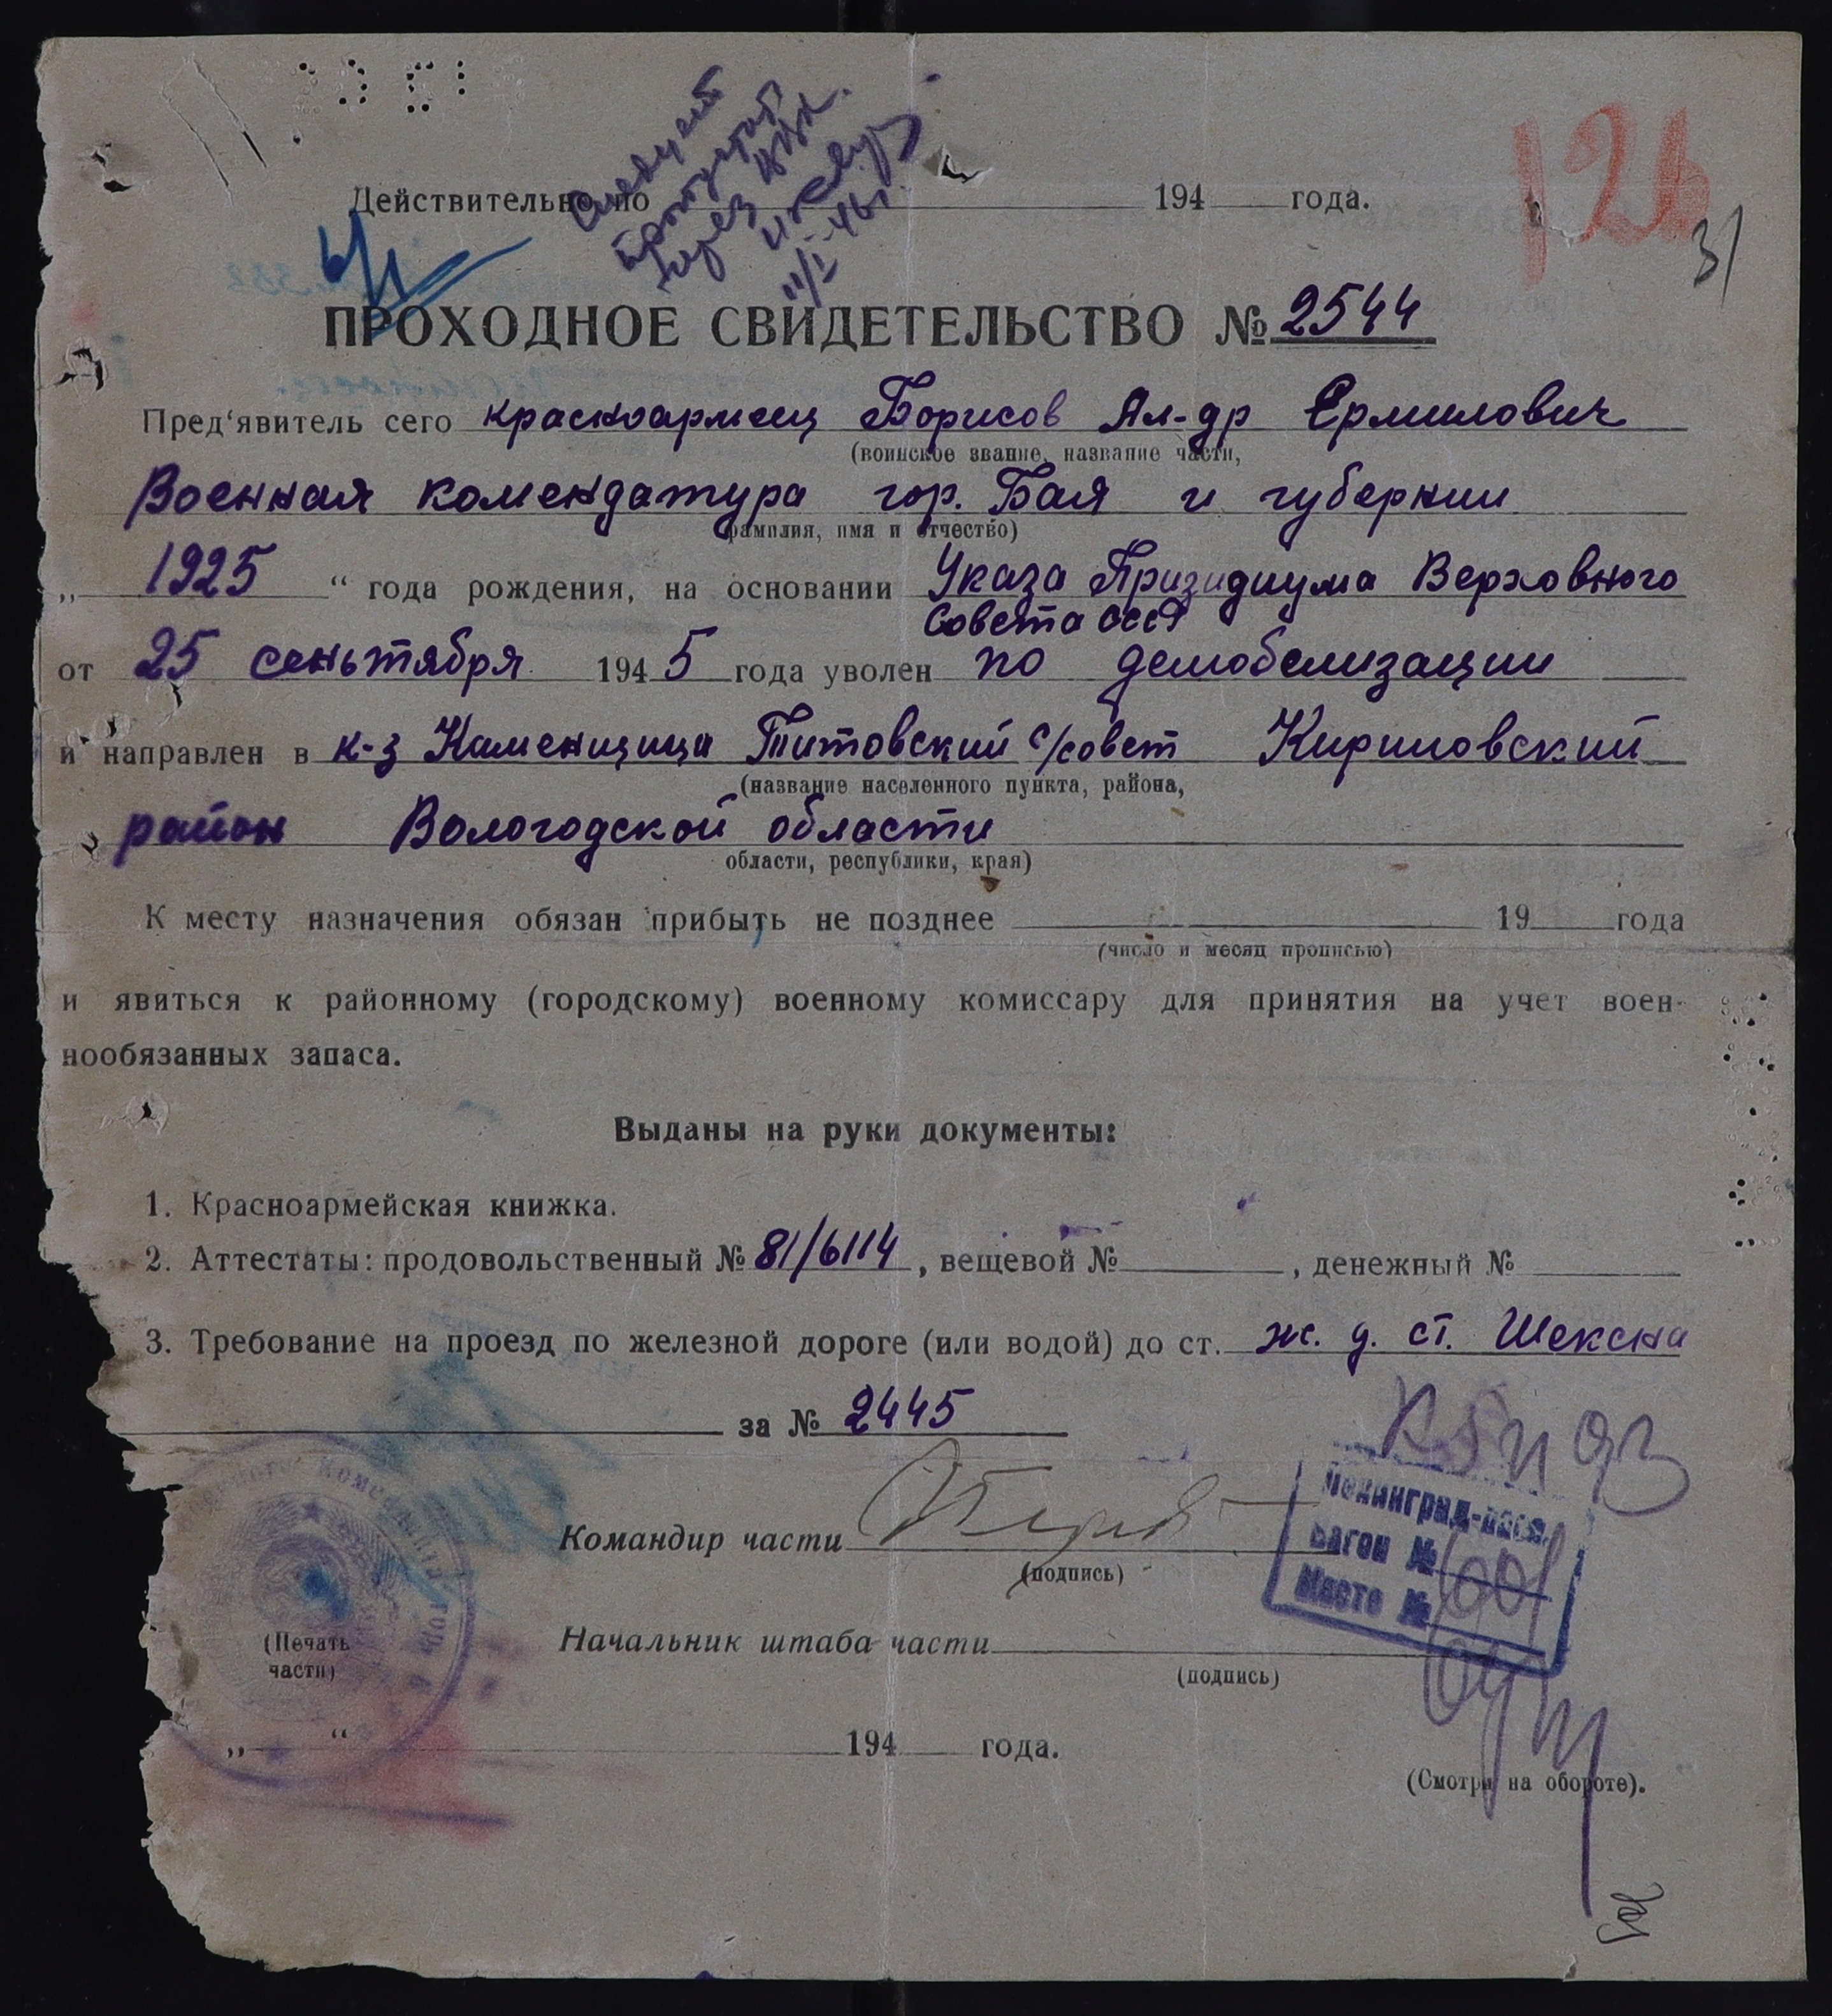 Действительно по 194 года.
126
31
ПРОХОДНОЕ СВИДЕТЕЛЬСТВО № 2544
Пред‘явитель сего красноармеец Борисов Ал-др Ермилович
(воинское звание, название части,
Военная комендатура гор. Бая и губернии
фамилия, имя и отчество)
„ 1925 “ года рождения, на основании Указа Призидиума Верховного
Совета СССР
от 25 сеньтября 1945 года уволен по демобелизации
и направлен в к-з Каменицица Титовский с/совет Кириловский
(название населенного пункта, района,
район Вологодской области
области, республики, края)
К месту назначения обязан прибыть не позднее 19 года
(число и месяц прописью)
и явиться к районному (городскому) военному комиссару для принятия на учет воен-
нообязанных запаса.
Выданы на руки документы:
1. Красноармейская книжка.
2. Аттестаты: продовольственный № 81/6114, вещевой № , денежный №
3. Требование на проезд по железной дороге (или водой) до ст. ж. д. ст. Шексна
за № 2445
Ленинград-пасс.
Вагон №
Место №
Командир части
(подпись)
Начальник штаба части
(подпись)
(Печать
части)
„ “ 194 года.
(Смотри на обороте).